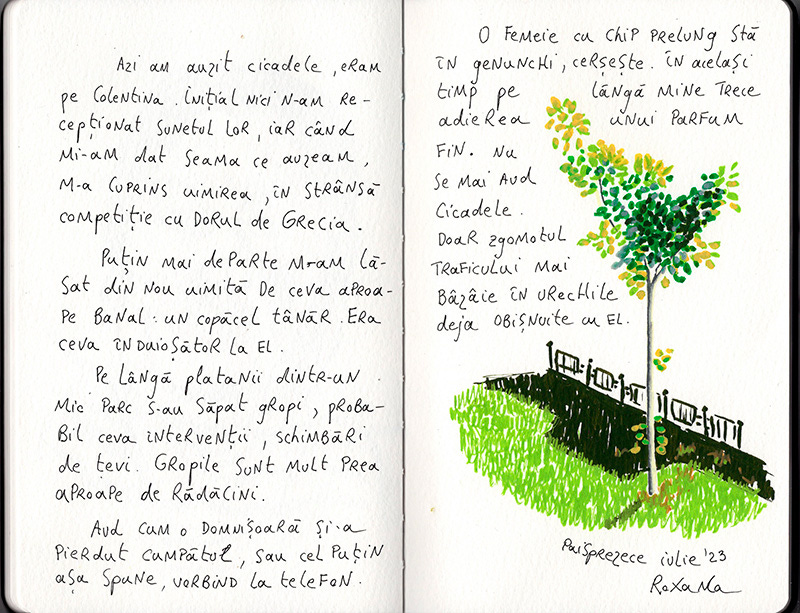 Azi am auzit cicadele, eram
pe Colentina. Inițial nici n-am re-
cepționat sunetul lor, iar când
mi-am dat seama ce auzeam,
m-a cuprins uimirea, în strânsă
competiție cu dorul de Grecia.
Puțin mai departe m-am lă-
sat din nou uimită de ceva aproa-
pe banal: un copăcel tânăr. Era
ceva înduioșător la el.
Pe lângă platanii dintr-un
mic parc s-au săpat gropi, proba-
bil ceva intervenții, schimbări
de țevi. Gropile sunt mult prea
aproape de rădăcini.
Aud cum o domnișoară și-a
pierdut cumpătul, sau cel puțin
așa spune, vorbind la telefon.
O femeie cu chip prelung stă
în genunchi, cerșește. În același
timp pe lângă mine trece
adierea unui parfum
fin. Nu
se mai aud
cicadele.
Doar zgomotul
traficului mai
bâzâie în urechile
deja obișnuite cu el.
Paisprezece iulie '23
Roxana